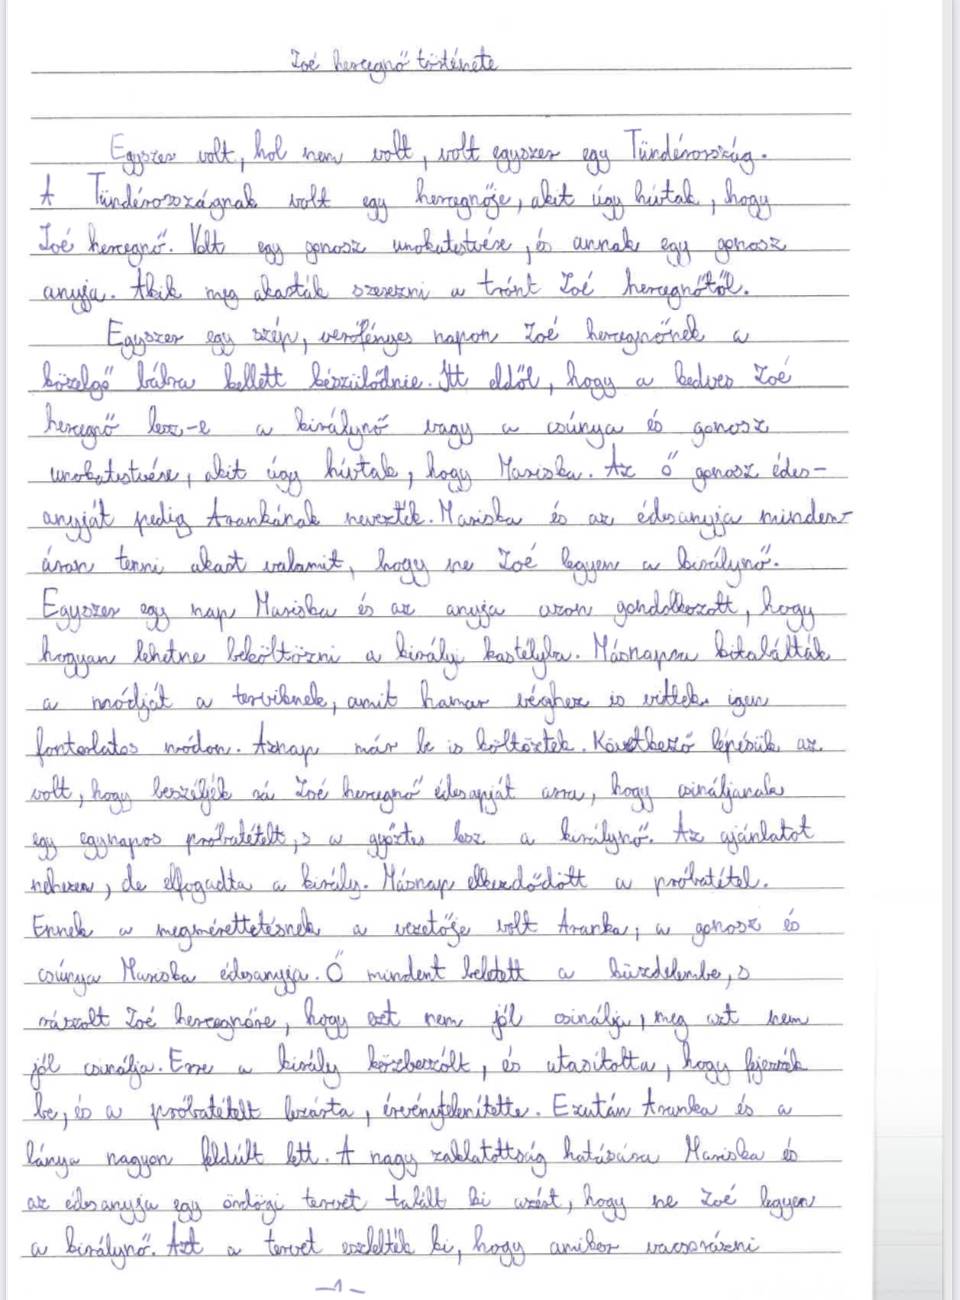 Zoé hercegnő története
Egyszer volt, hol nem volt, volt egyszer egy Tündérország.
A Tündérországnak volt egy hercegnője, akit úgy hívtak, hogy
Zoé hercegnő. Volt egy gonosz unokatestvére, és annak egy gonosz
anyja. Akik meg akarták szerezni a trónt Zoé hercegnőtől.
Egyszer egy szép, verőfényes napon Zoé hercegnőnek a
közelgő bálra kellett készülődnie. Itt eldől, hogy a kedves Zoé
hercegnő lesz-e a királynő vagy a csúnya és gonosz
unokatestvére, akit úgy hívtak, hogy Mariska. Az ő gonosz édes-
anyját pedig Arankának nevezték. Mariska és az édesanyja minden-
áron tenni akart valamit, hogy ne Zoé legyen a királynő.
Egyszer egy nap Mariska és az anyja azon gondolkozott, hogy
hogyan lehetne beköltözni a királyi kastélyba. Másnapra kitalálták
a módját a terviknek, amit hamar véghez is vittek igen
fontorlatos módon. Aznap már be is költöztek. Következő lépésük az
volt, hogy beszéljék rá Zoé hercegnő édesapját arra, hogy csináljanak
egy egynapos próbatételt, s a győztes lesz a királynő. Az ajánlatot
nehezen, de elfogadta a király. Másnap elkezdődött a próbatétel.
Ennek a megmérettetésnek a vezetője volt Aranka, a gonosz és
csúnya Mariska édesanyja. Ő mindent beletett a küzdelembe, s
rászólt Zoé hercegnőre, hogy ezt nem jól csinálja, meg azt nem
jól csinálja. Erre a király közbeszólt, és utasította, hogy fejezzék
be, és a próbatételt lezárta, érvénytelenítette. Ezután Aranka és a
lánya nagyon feldúlt lett. A nagy zaklatottság hatására Mariska és
az édesanyja egy ördögi tervet talált ki azért, hogy ne Zoé legyen
a királynő. Azt a tervet eszelték ki, hogy amikor vacsorázni
-1-